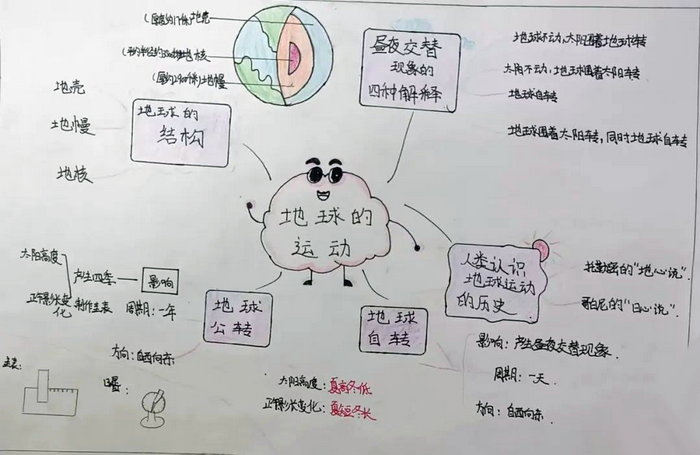 地壳
地幔
地核
地球的
结构
昼夜交替
现象的
四种解释
地球不动,太阳围着地球转
太阳不动,地球围着太阳转
地球自转
地球围着太阳转,同时地球自转
地球的
运动
人类认识
地球运动
的历史
托勒密的“地心说”.
哥白尼的“日心说”.
太阳高度
产生四季
影响
正午影长变化
制作圭表
周期:一年
方向:自西向东
地球
公转
地球
自转
影响:产生昼夜交替现象.
周期:一天.
方向:自西向东.
圭表:
日晷:
太阳高度:夏高冬低
正午影长变化:夏短冬长